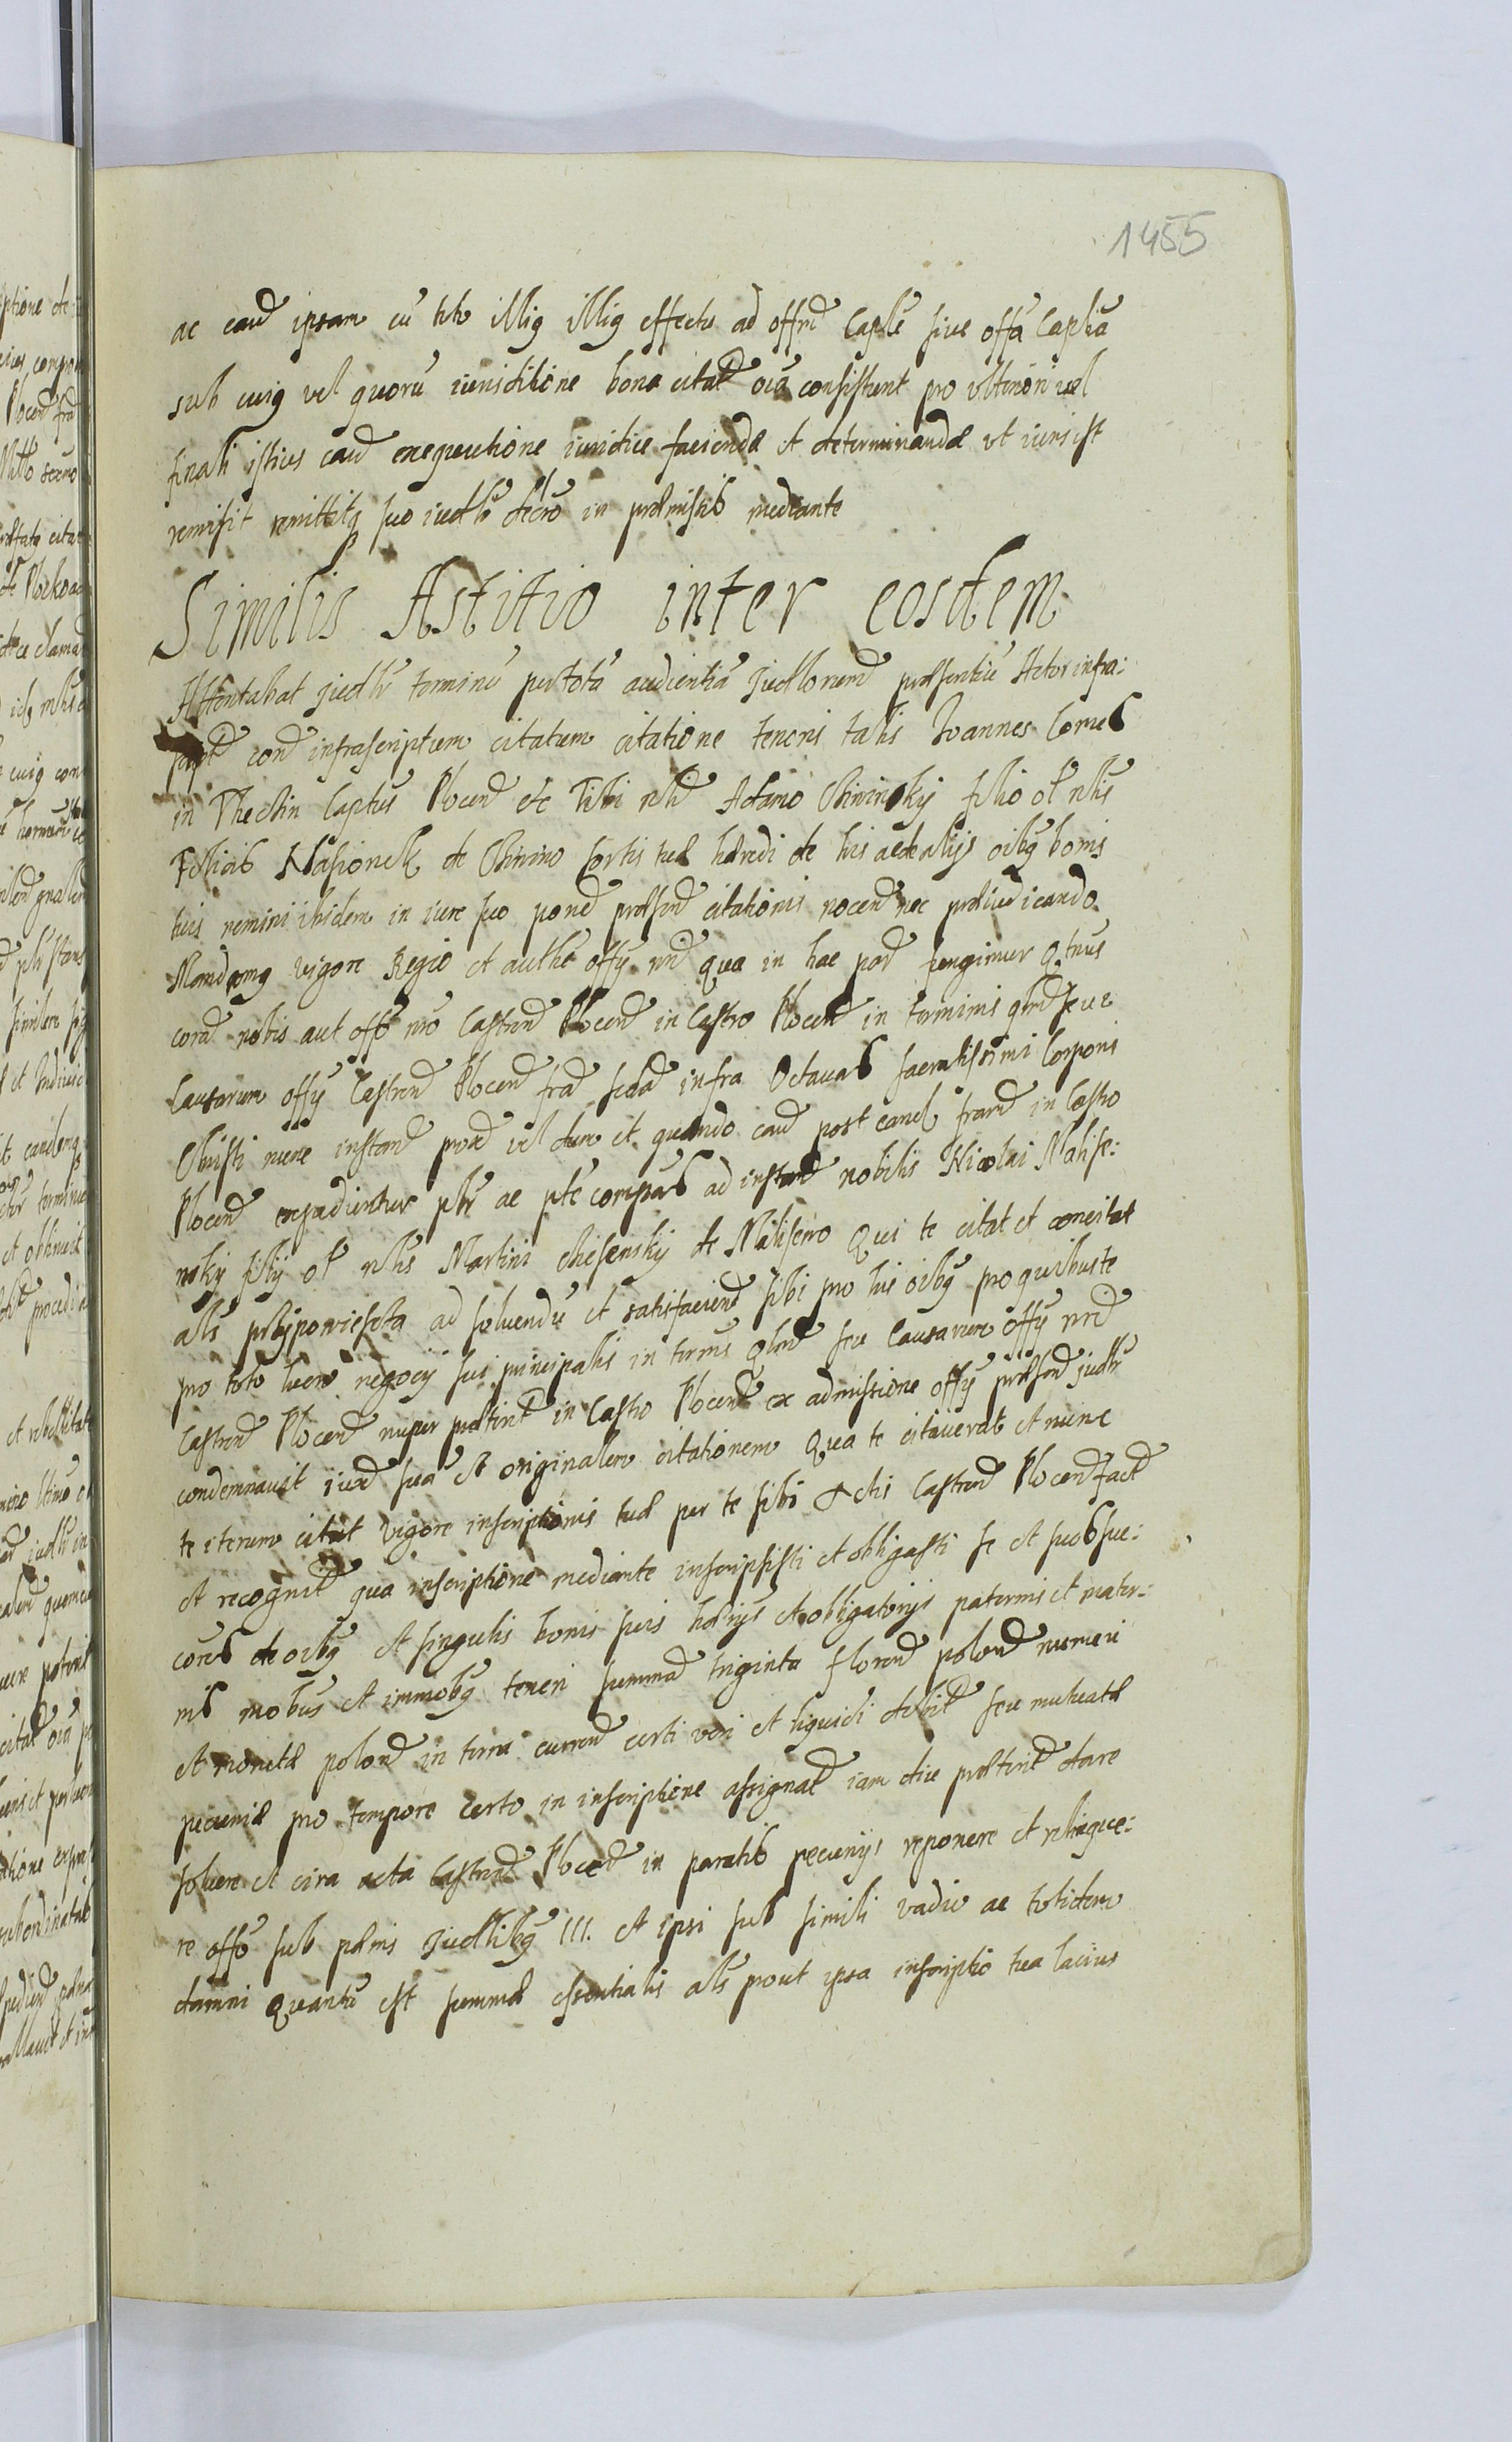 1455
ac caud ipsam cũ toto illig illig effectu ad offm̃ Caplẽ sive offã Capliã
sub cuig vel quorũ iurisditione bona citatд oĩa consistunt pro ulteriori vel
finali istius caud exequutione iuridice faciendæ et determinandæ ut iuris est
remisit remittitq suo iudlĩ decrõ in præmissis mediante
Similis Astitio inter eosdem
Attentabat judlr̃ terminũ per totã audientiã Judlorum præsentiũ Actor infra:
scptд cond infrascriptum citatum citatione tenoris talis Joannes Comes
in Theczin Captus Plocenд etc Tibi nbli Adamo Chininsky filio ol nblis
Felicis Nasionek de Chinino sortis tuæ hæredi de his ac de alijs oibg bonis
tuis remini ibidem in iure suo ponд præsenд citationis nocenд nec præiudicando
Mandamg vigore Regio et authe offy nrд qua in hac parд fungimur qtnus
cord nobis aut offõ nrõ Castrenд Plocenд in Castro Plocenд in terminis qlrд seu
Causarum offy Castrenд Plocenд frad feria infra Octavas sacratissimi Corporis
Christi nunc instanд prox vel dum et quando caud post canc trand in Castro
Plocenд expedientur plr̃ ac pte compãs ad instanд nobilis Nicolai Malise:
nsky filij ol nblis Martini de Maliseno Qui te citat et concitat
als przypowiescta ad solvendũ et satisfaciendд sibi pro his oibg pro quibus te
pro toto lucro negocij sui principalis in termis qlrд seu Causarum offy nrд
Castrenд Plocenд nuper præteritд in Castro Plocenд ex admissione offy præsenд judlr̃
condemnavit iuxд suã et originalem citationem Qua te citaverat et nunc
te iterum citat vigore inscriptionis tuæ per te sibi Actis Castrenд Plocenд factд
et recognitд qua inscriptione mediante inscripsisti et obligasti se et suos suc:
cores de oibg et singulis bonis suis hærijs et obligatorijs paternis et mater:
nis mobus et immobg teneri summд triginta florenд polonд numeri
et monetæ polonд in terra currenд certi veri et liquidi debitд seu mutuatæ
pecuniæ pro tempore certo in inscriptione assignatд iam diu præteritд dare
solvere et cira acta Castrenд Plocenд in paratis pecunijs reponere et relinque:
re offõ sub pænis Judlibg III. et ipsi sub simili vadio ac totidem
damni quantũ est summæ essentialis als prout ipsa inscriptio tua lacius